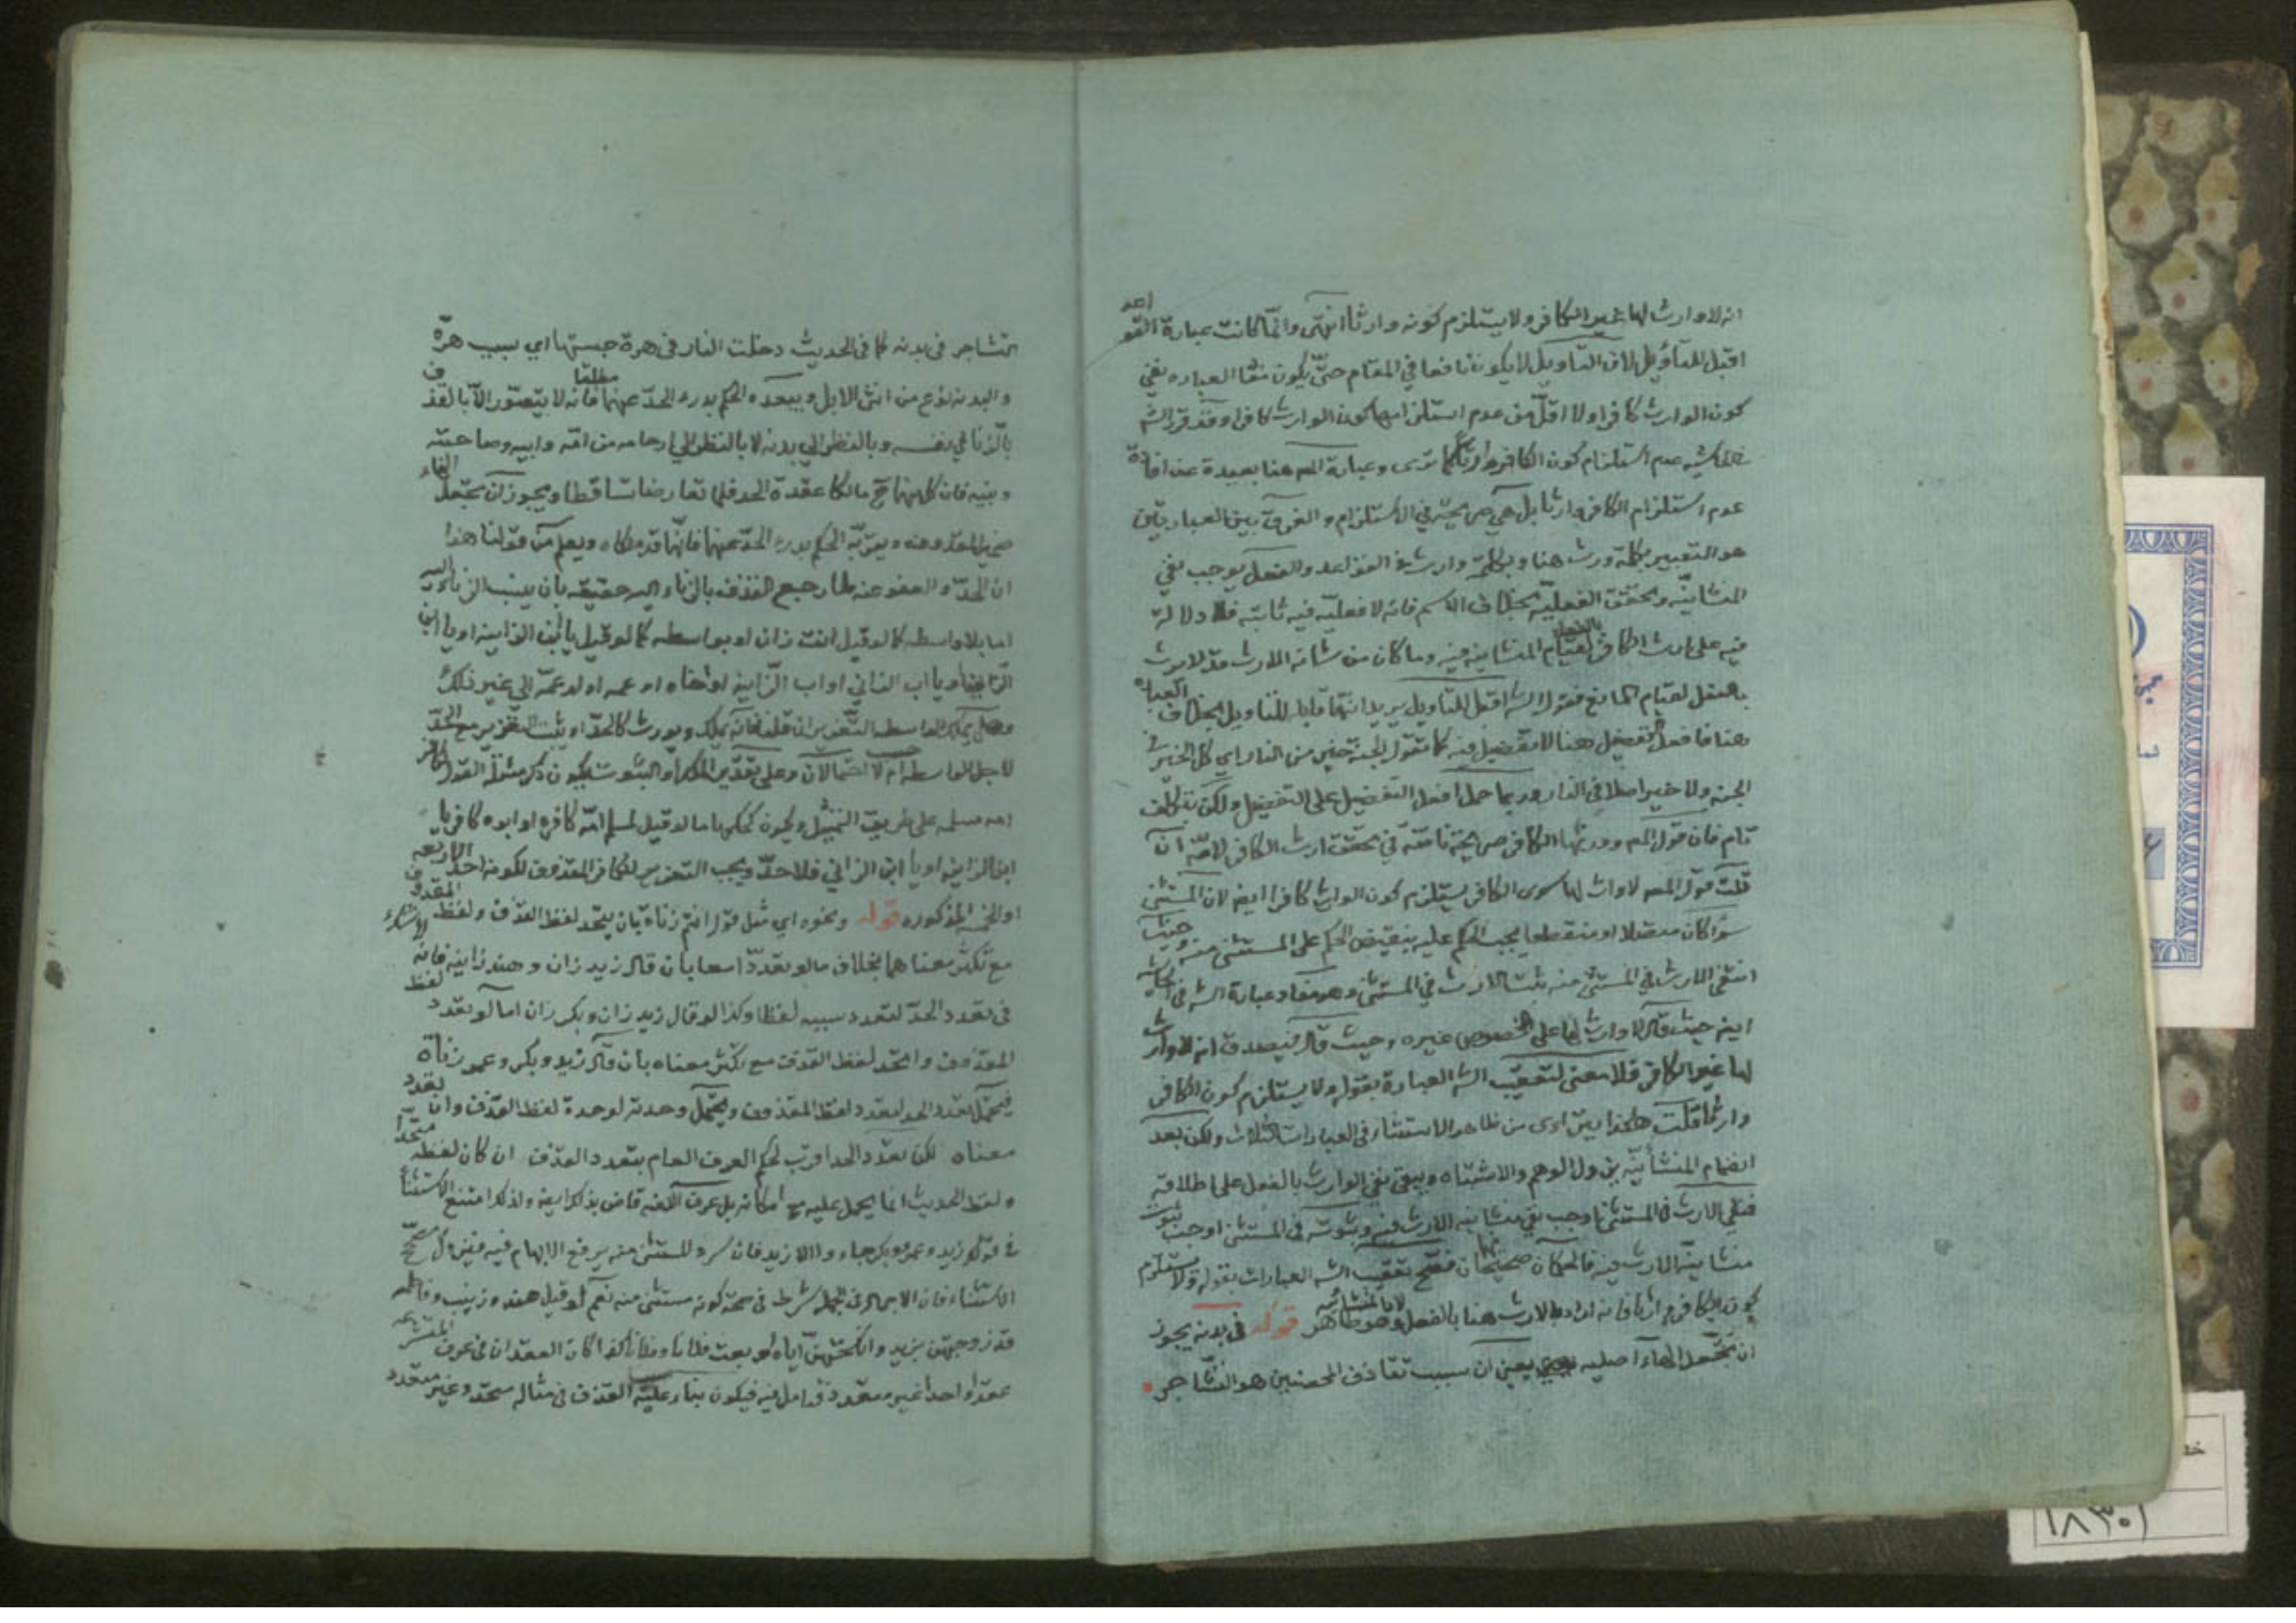 انه لا وارث لها غير الكافر ولا يستلزم كونه وارثا انتهى وانما كانت عبارة القواعد
اقبل للتأويل لان التاويل لا يكون نافعا في المقام حتى يكون مفاد العباره نفي
كون الوارث كافرا ولا اقل من عدم استلزامها كون الوارث كافرا وقد قرر الشه
عدم استلزام كون الكافر وارثا كما ترى وعبارة المصه هنا بعيدة عن افادة
عدم استلزام الكافر وارثا بل هي صريحة في الاستلزام والفرق بين العبارتين
هو التعبير بكلمة ورث هنا وبكلمة وارث في القواعد والفعل يوجب نفي
المنشائيه وتحقق الفعليه بخلاف الاسم فانه لا فعليه فيه ثابته فلا دلاله
فيه على ارث الكافر بالفعل لقيام المنشائيه فيه وما كان من شانه الارث قد لا يرث
بالفعل لقيام المانع فقول الشه اقبل للتاويل يريد انها قابله للتاويل بخلاف العباره
هنا فافعل التفضيل هنا لا تفضيل فيه كما تقول الجنة خير من النار اي كل الخير في
الجنه ولا خير اصلا في النار وربما حمل افعل التفضيل على التفضيل ولكن بتكلف
تام فان قول المصه وورثها الكافر صريحة تامة في تحقق ارث الكافر لامه ان
قلت قول المصه لا وارث لها سوى الكافر يستلزم كون الوارث كافرا ايضا لان المستثنى
سواء كان متصلا او منقطعا يجب الحكم عليه بنقيض الحكم على المستثنى منه وحيث
انتفى الارث في المستثنى منه يثبت الارث في المستثنى وهو مفاد عبارة الشه في
ايضا حيث قال لا وارث لها على الخصوص غيره وحيث قال فيصدق انه لا وارث
لها غير الكافر فلا معنى لتعقيب الشه العبارة بقوله ولا يستلزم كون الكافر
وارثا قلت هكذا يترائى من ظاهر الاستثناء في العبارات الثلاث ولكن بعد
انضمام المنشأئيه يزول الوهم والاشتباه ويبقى نفي الوارث بالفعل على اطلاقه
فنفي الارث في المستثنى منه وثبوته في المستثنى اوجب ثبوت
منشائية الارث فيه فالحكمان صحيحان فصح تعقيب الشه العبارات بقوله ولا يستلزم
كون الكافر وارثا فانه اراد بالارث هنا بالفعل لا بالمنشائيه وهو ظاهر قوله في بدنه يجوز
ان تجعل الهاء اصليه يعني ان سبب تقاذف المحصنين هو التشاجر
التشاجر في بدنه كما في الحديث دخلت النار في هرة حبستها اي بسبب هرة
والبدنه نوع من انثى الابل ويبعده الحكم بدرء الحد عنهما مطلقا فانه لا يتصور الا بالقذف
بالزنا في نفسه وبالنظر الي بدنه لا بالنظر الي ارحامه من امه وابيه وصاحبته
وبنيه فان كلا منهما ح مالكا عقدة الحد فلما تعارضا تساقطا ويجوز ان يجعل الهاء
ويقربه الحكم بدرء الحد عنهما فانهما قد ملكاه ويعلم من قولنا هذا
ان الحد والعفو عنه لمن رجع القذف بالزناء اليه حقيقه بان ينسب الزناء اليه
اما بلا واسطه كما لو قيل انت زان او بواسطه كما لو قيل يا ابن الزانيه او يا ابن
الزاني او يا اب الزاني او اب الزانيه او اخاه او عمه او ولد عمه الي غير ذلك
وهل يملك الواسطه التعزير ان قلنا فانه يملك ويورث كالحد او يثبت التعزير مع الحد
لاجل الواسطه ام لا احتمالان وعلى تقدير الملك او الثبوت فيكون ذكر مثل القول للكافر
امه مسلمه على طريق التمثيل ويكون كحكمها ما لو قيل لمسلم امه كافره او ابوه كافر يا
ابن الزانيه او يا ابن الزاني فلا حد ويجب التعزير للكافر المقذوف لكونه احد الاربعه
او الخمسه المذكوره قوله ونحوه اي مثل قول انتم زناه بان يتحد لفظ القذف ولفظ المقذوف
مع تكثر معناهما بخلاف ما لو تعددا معا بان قال زيد زان وهند زانيه فانه
في تعدد الحد لتعدد سببه لفظا وكذا لو قال زيد زان وبكر زان اما لو تعدد لفظ
المقذوف واتحد لفظ القذف مع تكثر معناه بان قال زيد وبكر وعمرو زناة
فيحتمل تعدد الحد لتعدد لفظ المقذوف ويحتمل وحدته لوحدة لفظ القذف وان تعدد
معناه لكن تعدد الحد اقرب لحكم العرف العام بتعدد القذف ان كان لفظه متحدا
ولفظ الحديث انما يحمل عليه مع امكانه بل عرف اللغه قاض بذلك ايضا ولذلك امتنع الاستثناء
في قولك زيد وعمرو وبكر جاءوا الا زيد فان سرد المستثنى منه يرفع الابهام فيه
الاستثناء فان الاجمال في الجمله شرط في صحة كونه مستثنى منه نعم لو قيل هند وزينب وفاطمه
قد زوجتهن بزيد وانكحتهن اياه او بعت فلانا وفلانا كذا كان العقد ان في عرف المتشرعه
عقدا واحدا غير متعدد فتامل فيه فيكون بناء عليه القذف في مثاله متحد وغير متعدد
١٨٣٠١